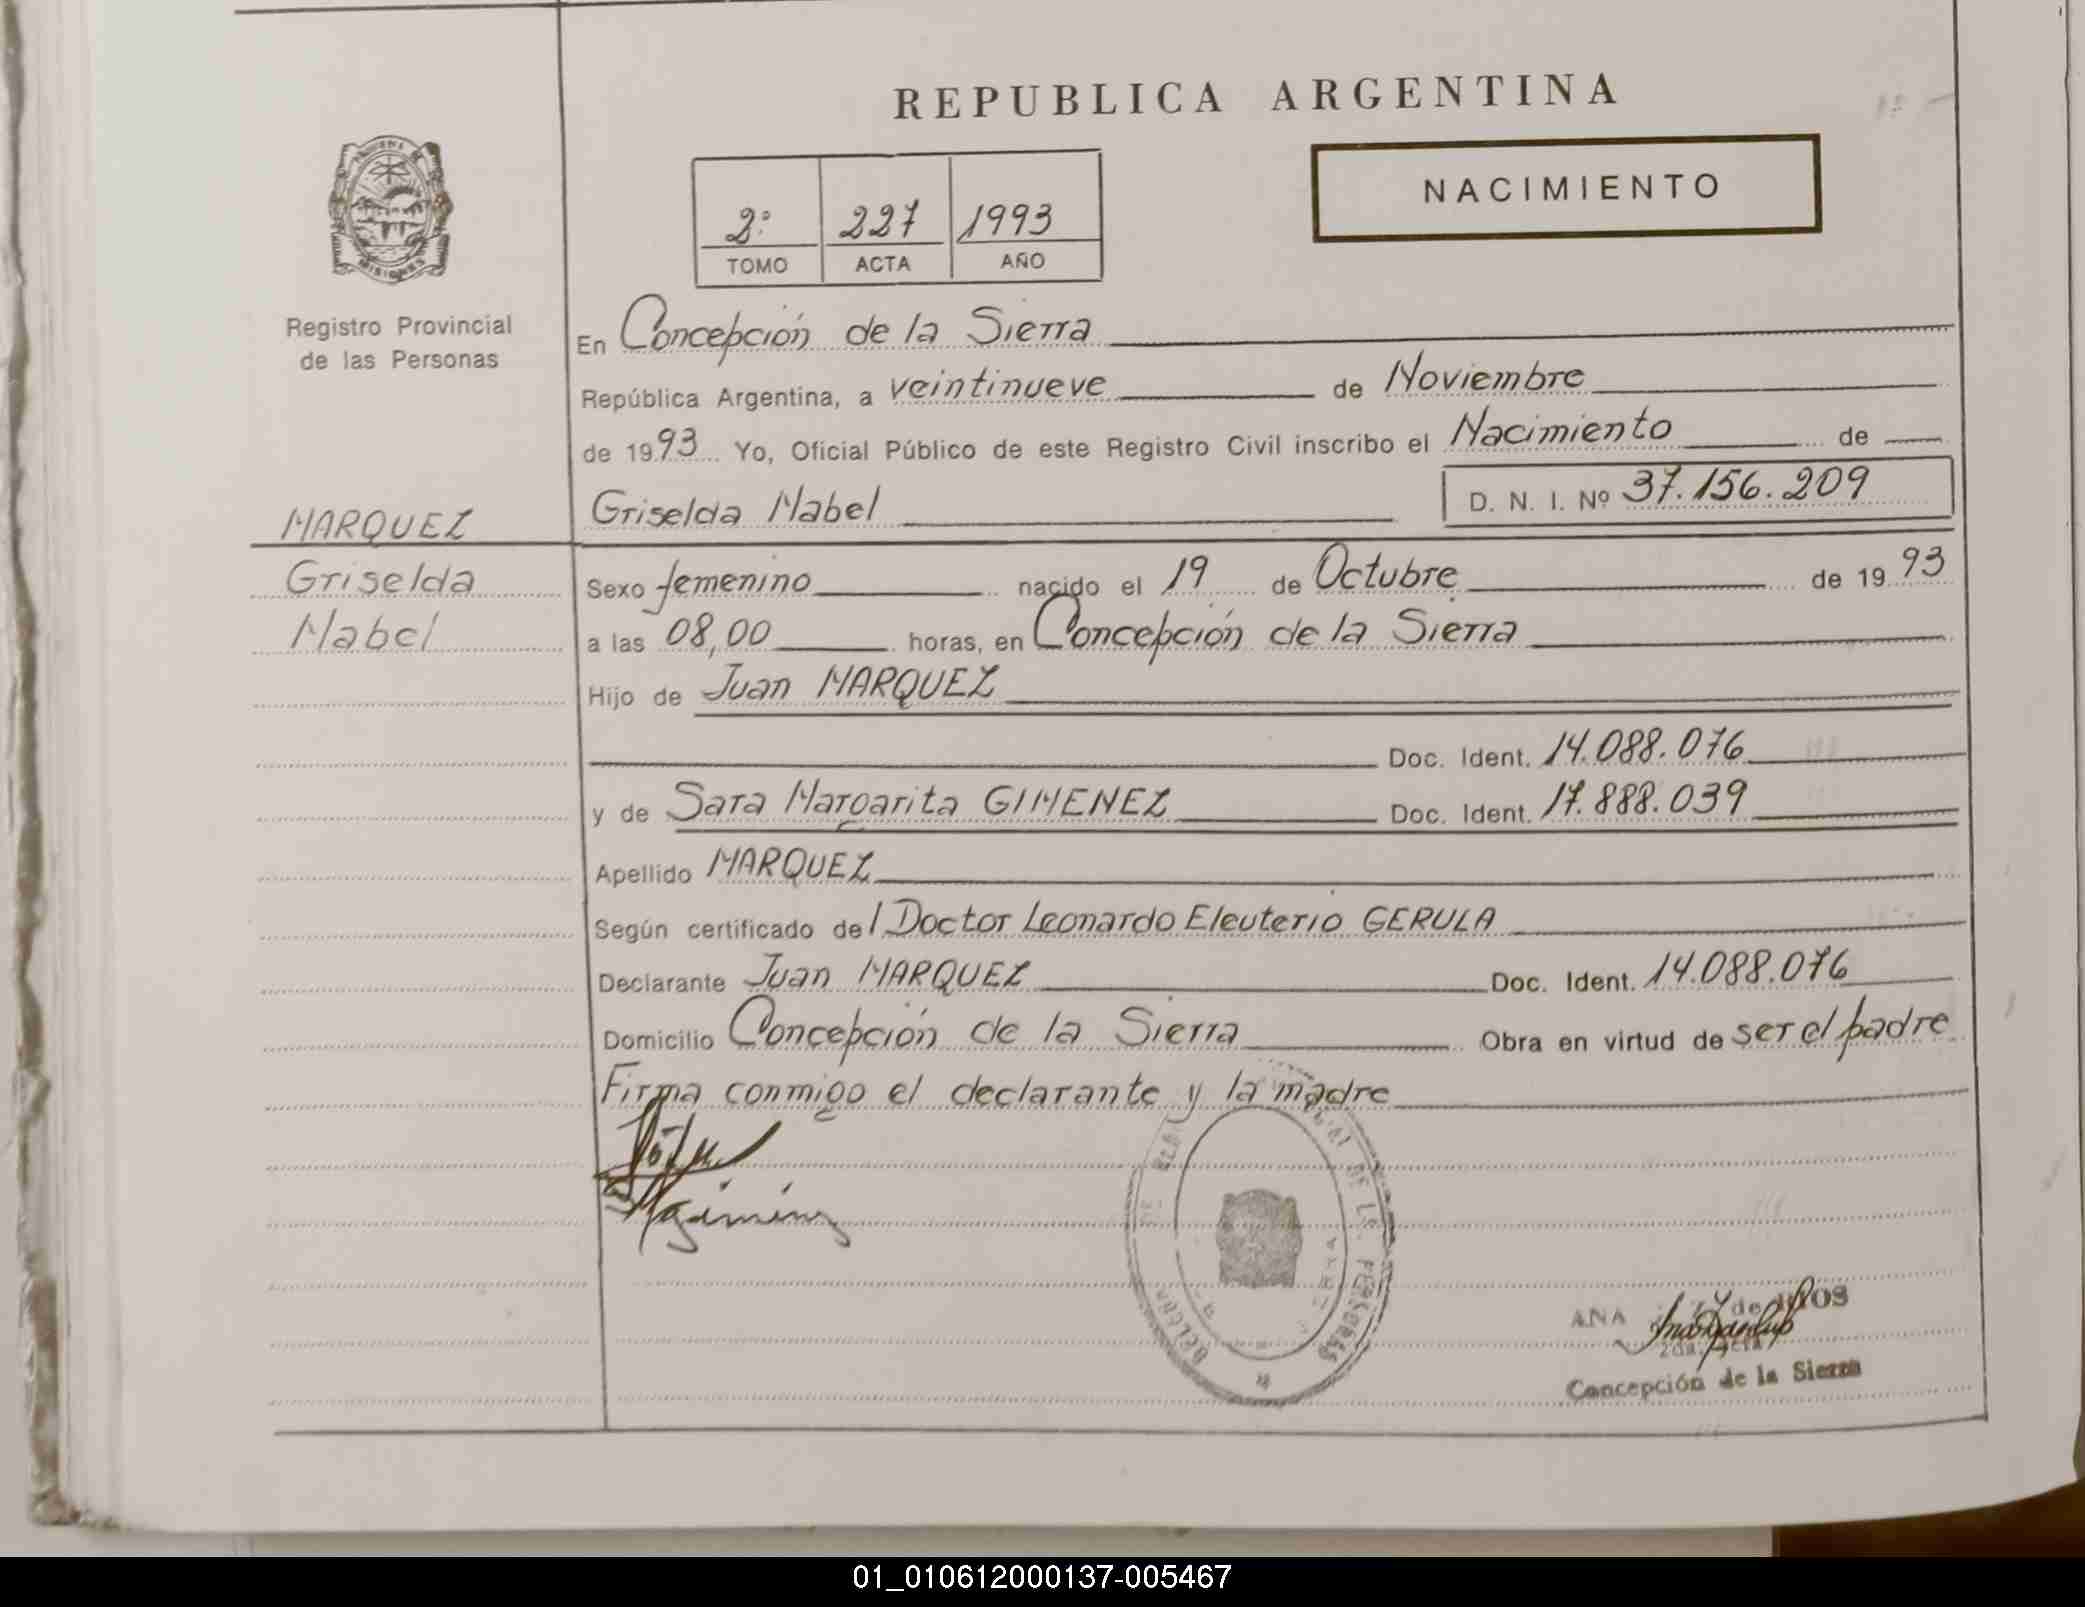 REPUBLICA ARGENTINA
NACIMIENTO
2º 227 1993
TOMO ACTA AÑO
MISIONES
Registro Provincial
de las Personas
En Concepción de la Sierra
República Argentina, a veintinueve de Noviembre
de 1993 Yo, Oficial Público de este Registro Civil inscribo el Nacimiento de
MARQUEZ Griselda Mabel D. N. I. Nº 37.156.209
Griselda Sexo femenino nacido el 19 de Octubre de 1993
Mabel a las 08,00 horas, en Concepción de la Sierra
Hijo de Juan MARQUEZ
Doc. Ident. 14.088.076
y de Sara Margarita GIMENEZ Doc. Ident. 17.888.039
Apellido MARQUEZ
Según certificado del Doctor Leonardo Eleuterio GERULA
Declarante Juan MARQUEZ Doc. Ident. 14.088.076
Domicilio Concepción de la Sierra Obra en virtud de ser el padre
Firma conmigo el declarante y la madre
ANA de
Concepción de la Sierra
01_010612000137-005467